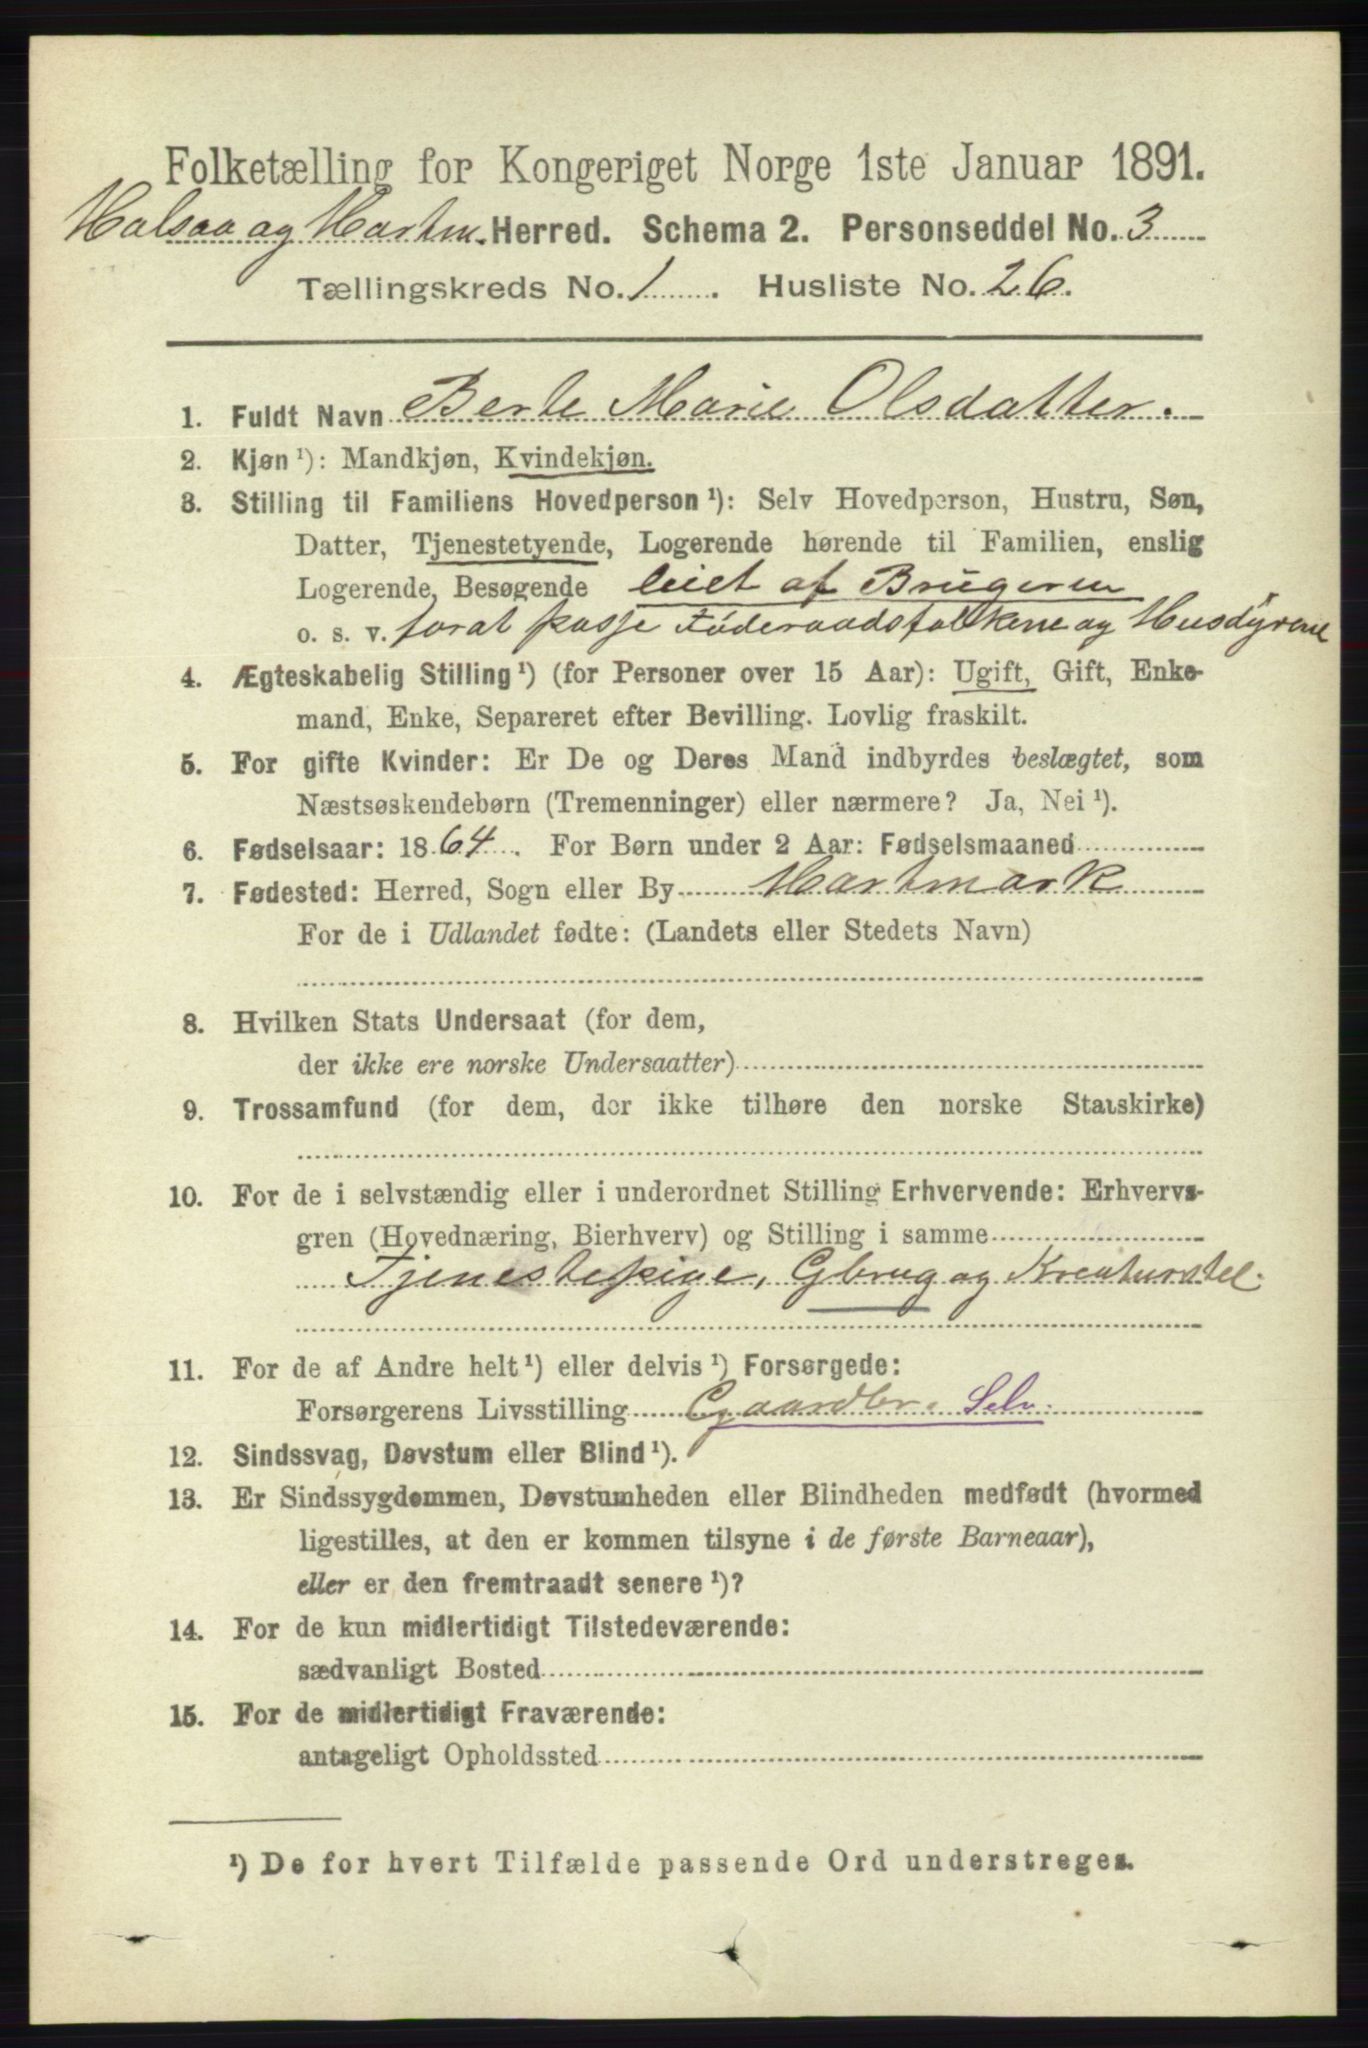 Folketælling for Kongeriget Norge 1ste Januar 1891.
Halsaa og Hartm. Herred. Schema 2. Personseddel No. 3
Tællingskreds No. 1. Husliste No. 26.
1. Fuldt Navn Berte Marie Olsdatter.
2. Kjøn ¹): Mandkjøn, Kvindekjøn.
3. Stilling til Familiens Hovedperson ¹): Selv Hovedperson, Hustru, Søn,
Datter, Tjenestetyende, Logerende hørende til Familien, enslig
Logerende, Besøgende leiet af Brugeren
o. s. v. forat passe Föderaadsfolkene og Husdyrene
4. Ægteskabelig Stilling ¹) (for Personer over 15 Aar): Ugift, Gift, Enke-
mand, Enke, Separeret efter Bevilling. Lovlig fraskilt.
5. For gifte Kvinder: Er De og Deres Mand indbyrdes beslægtet, som
Næstsøskendebørn (Tremenninger) eller nærmere? Ja, Nei ¹).
6. Fødselsaar: 1864. For Børn under 2 Aar: Fødselsmaaned
7. Fødested: Herred, Sogn eller By Hartmark
For de i Udlandet fødte: (Landets eller Stedets Navn)
8. Hvilken Stats Undersaat (for dem,
der ikke ere norske Undersaatter)
9. Trossamfund (for dem, der ikke tilhøre den norske Statskirke)
10. For de i selvstændig eller i underordnet Stilling Erhvervende: Erhvervs-
gren (Hovednæring, Bierhverv) og Stilling i samme
Tjenestepige, Gbrug og Kreaturstel.
11. For de af Andre helt ¹) eller delvis ¹) Forsørgede:
Forsørgerens Livsstilling Gaardbr. Selv.
12. Sindssvag, Døvstum eller Blind ¹).
13. Er Sindssygdommen, Døvstumheden eller Blindheden medfødt (hvormed
ligestilles, at den er kommen tilsyne i de første Barneaar),
eller er den fremtraadt senere ¹)?
14. For de kun midlertidigt Tilstedeværende:
sædvanligt Bosted
15. For de midlertidigt Fraværende:
antageligt Opholdssted
¹) De for hvert Tilfælde passende Ord understreges.